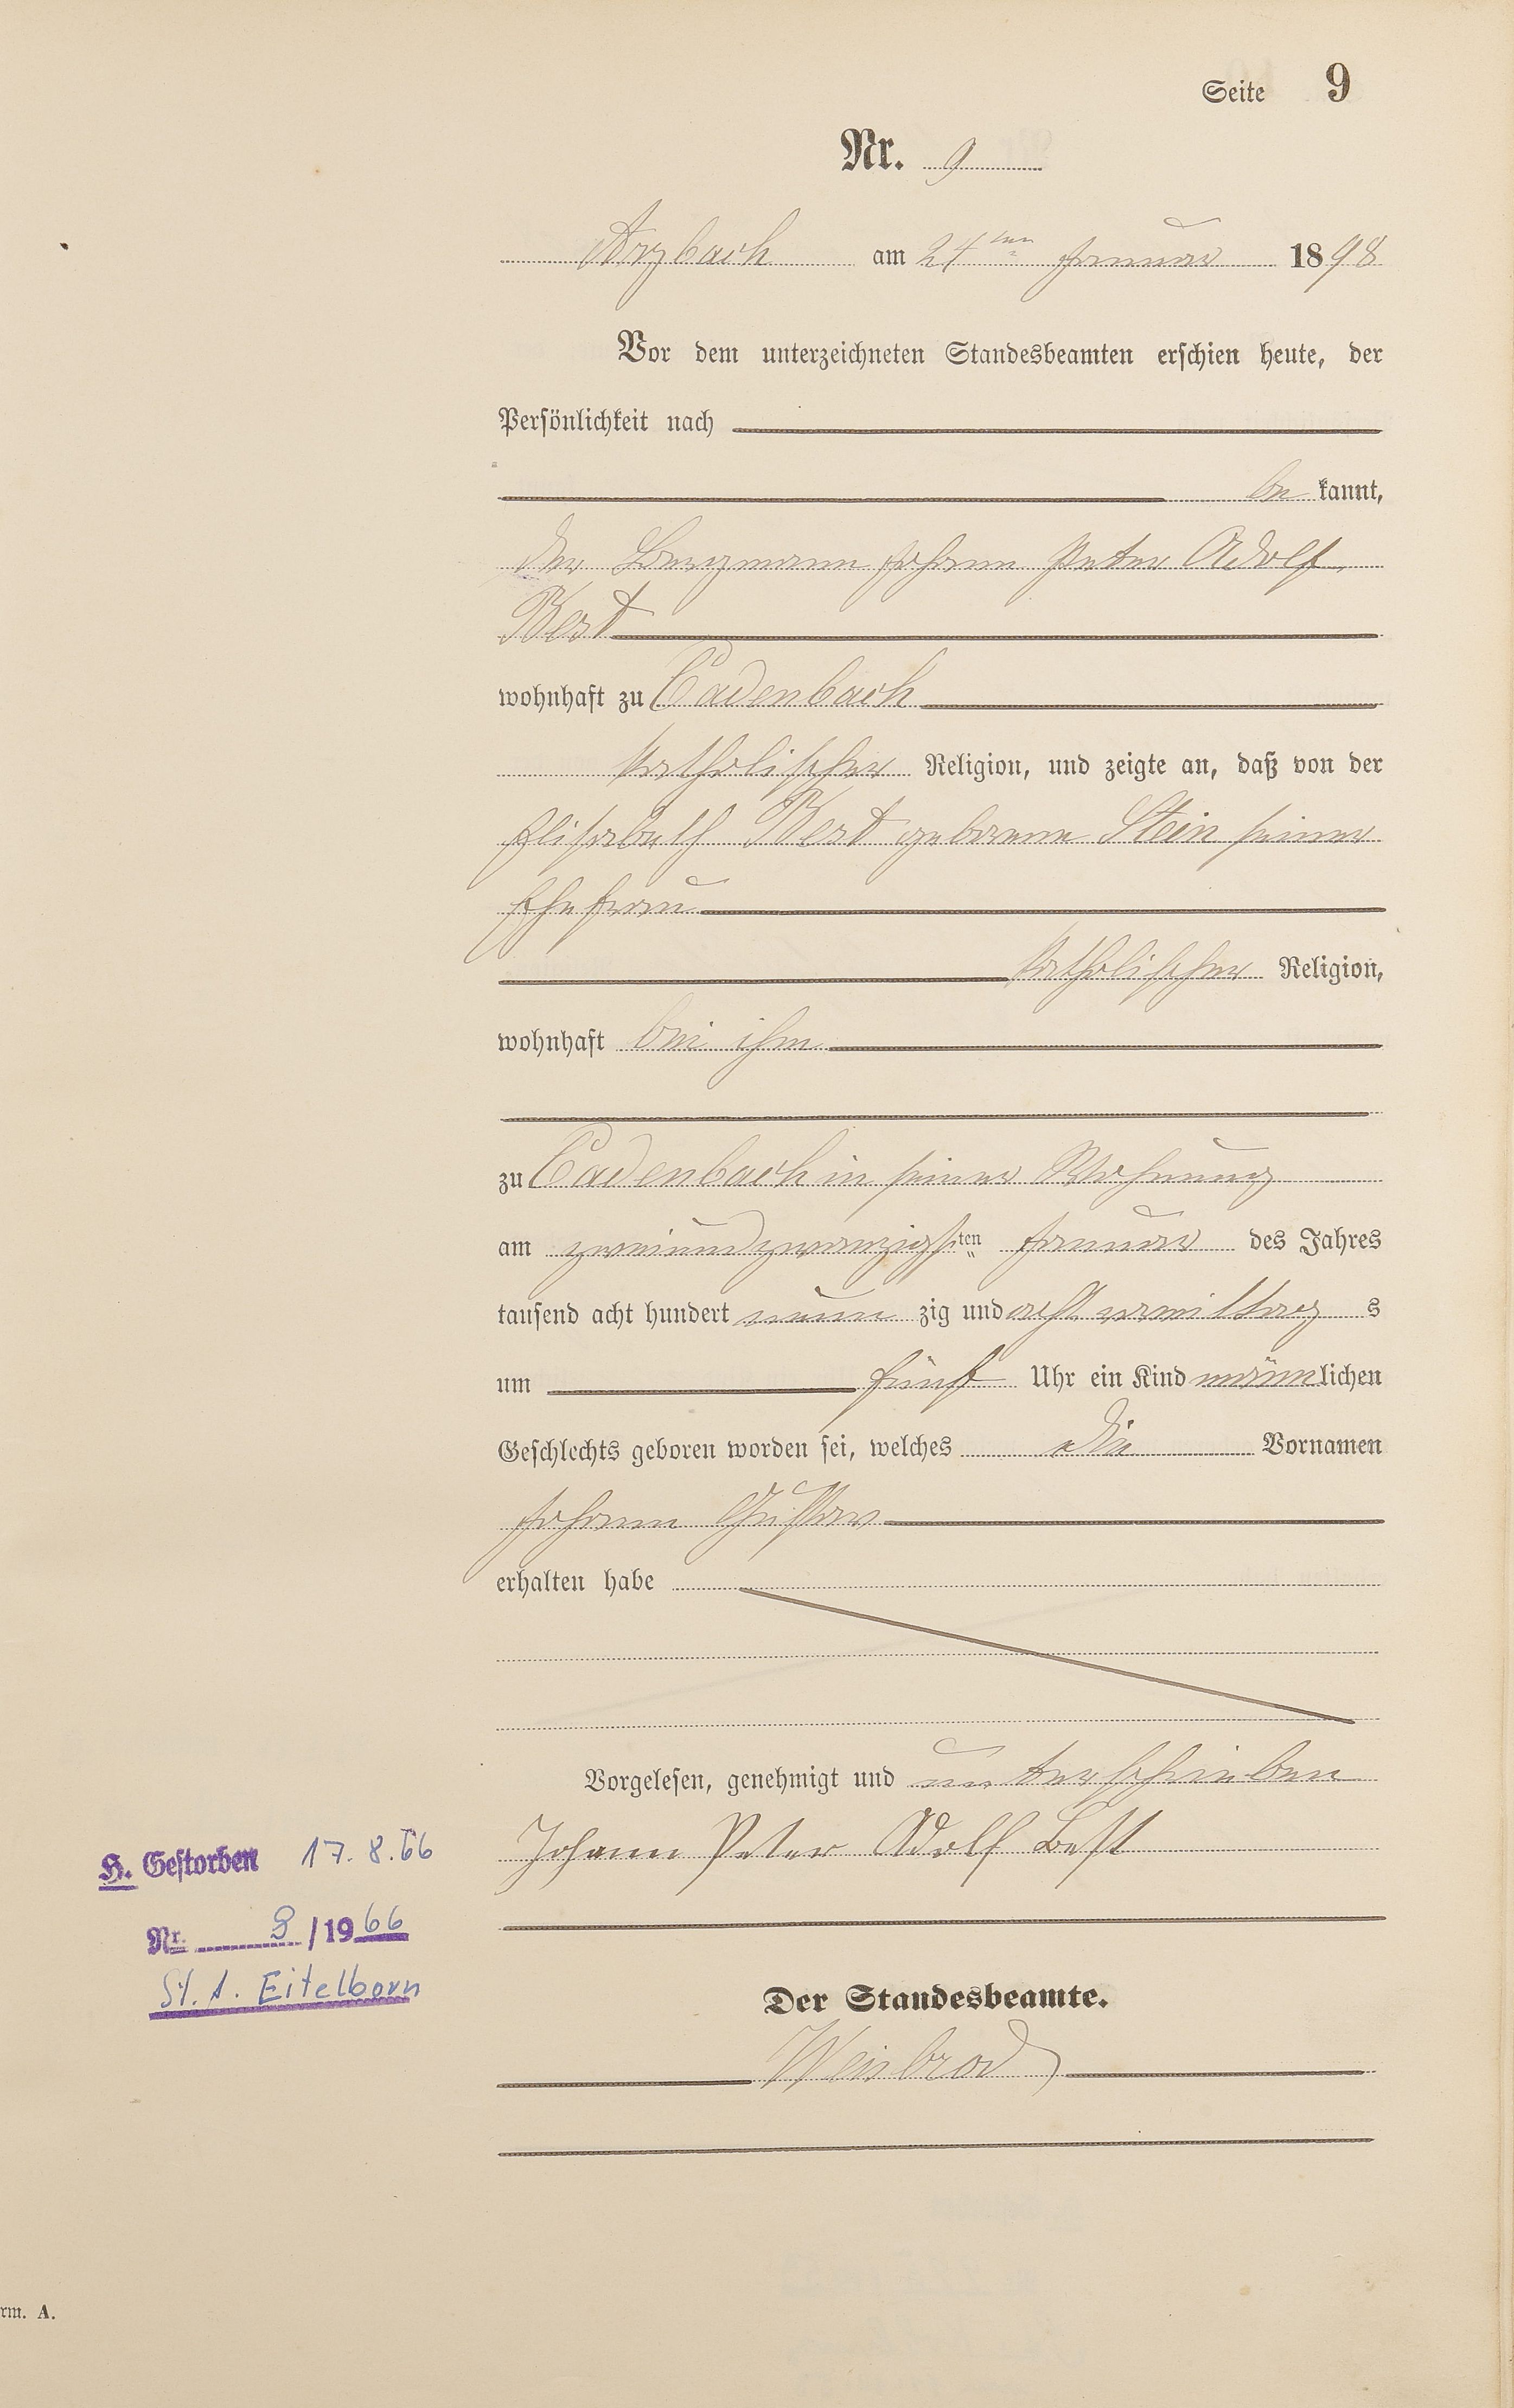 Seite 9
Nr. 9
Arzbach am 24ten Januar 1898
Vor dem unterzeichneten Standesbeamten erschien heute, der
Persönlichkeit nach
be kannt,
der Bergmann Johann Peter Adolf
Best
wohnhaft zu Cadenbach
katholischer Religion, und zeigte an, daß von der
Elisabeth Best geborene Stein seiner
Ehefrau
katholischer Religion,
wohnhaft bei ihm
zu Cadenbach in seiner Wohnung
am zweiundzwanzigsten Januar des Jahres
tausend acht hundert neun zig und acht vormittag s
um fünf Uhr ein Kind männlichen
Geschlechts geboren worden sei, welches die Vornamen
Johann Gustav
erhalten habe
Vorgelesen, genehmigt und unterschrieben
Johann Peter Adolf Best
H. Gestorben 17.8.66
Nr. 8/1966
St. A. Eitelborn
Der Standesbeamte.
Weisbrod
rm. A.